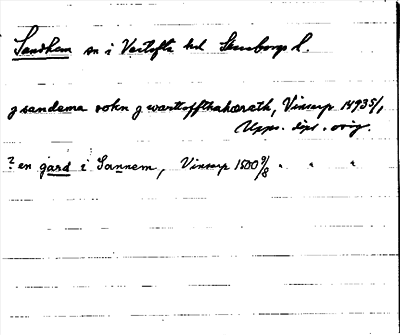 Sandhem sn i Vartofta hd Skaraborgs l.
j sandema sokn j warttoffthahæreth, Vinsarp 1493 5/1,
Upps. dipl. orig.
? en gard i Sannem, Vinsarp 1500 9/8 " " "